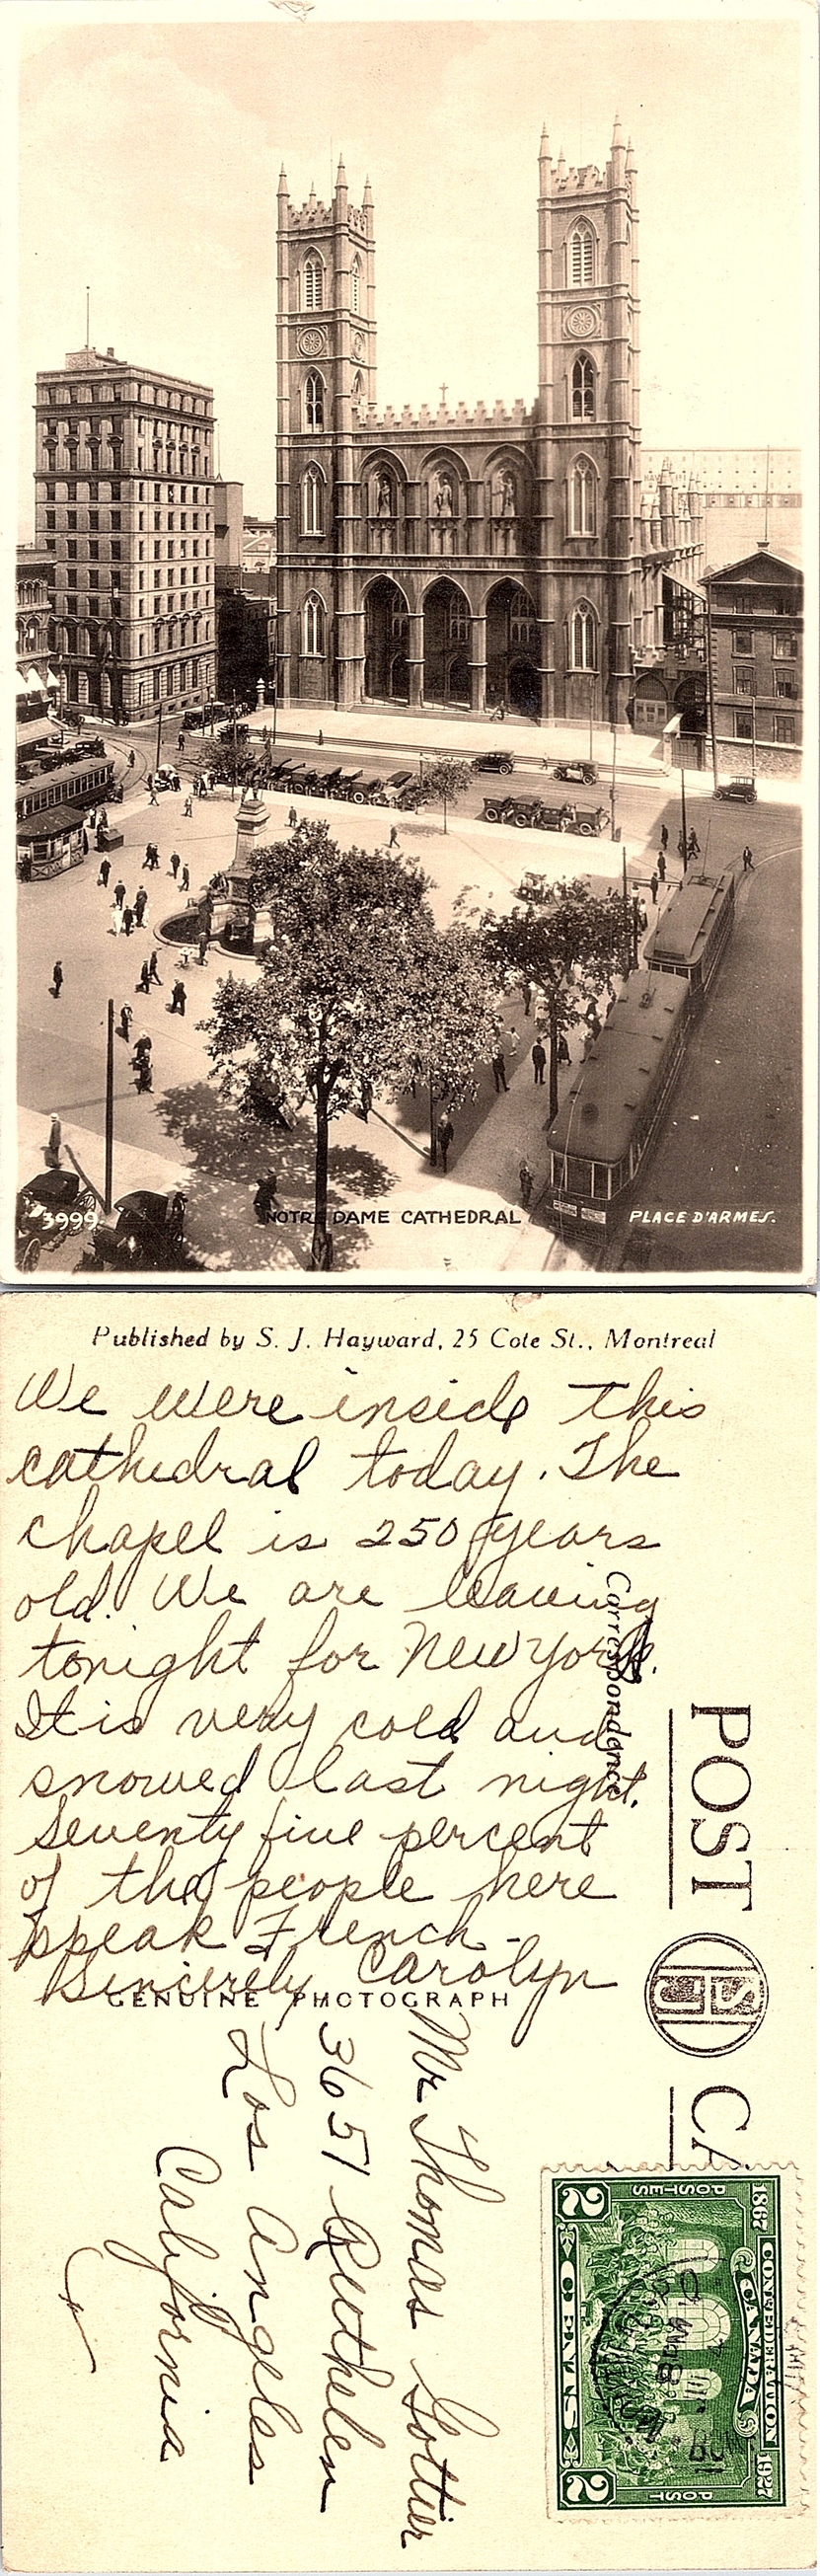 3999
NOTRE DAME CATHEDRAL
PLACE D'ARMES.
Published by S. J. Hayward, 25 Cote St., Montreal
We were inside this
cathedral today. The
chapel is 250 years
old. We are leaving
tonight for New York.
It is very cold and
snowed last night.
Seventy five percent
of the people here
speak French -
Sincerely Carolyn
Correspondence
GENUINE PHOTOGRAPH
POST CA
Mr. Thomas Gottier
3651 Ruthelen
Los Angeles
California
1867 CONFEDERATION 1927
CANADA
POSTES POST
2 CENTS 2